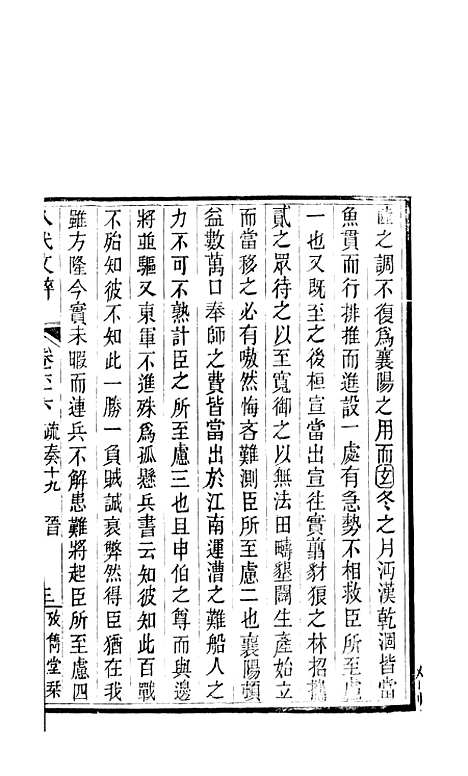 之調不復爲襄陽之用而玄冬之月沔漢乾涸皆當
魚貫而行排推而進設一處有急勢不相救臣所至慮
一也又既至之後桓宣當出宣往實翦豺狼之林招攜
貳之眾待之以至寬御之以無法田疇墾闢生產始立
而當移之必有嗷然悔吝難測臣所至慮二也襄陽頓
益數萬口奉師之費皆當出於江南運漕之難船人之
力不可不熟計臣之所至慮三也且申伯之尊而與邊
將並驅又東軍不進殊爲孤懸兵書云知彼知此百戰
不殆知彼不知此一勝一負賊誠衰弊然得臣猶在我
雖方隆今實未暇而連兵不解患難將起臣所至慮四
八代文粹 疏奏十九 晉 三 攷雋堂栞